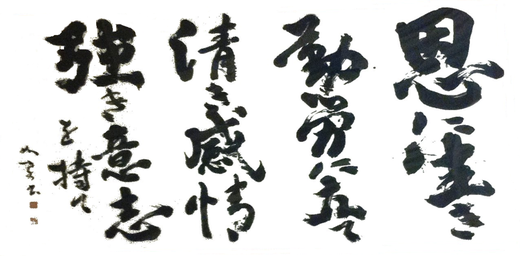 恩に生き
勤労に立て
清き感情
強き意志
を持て